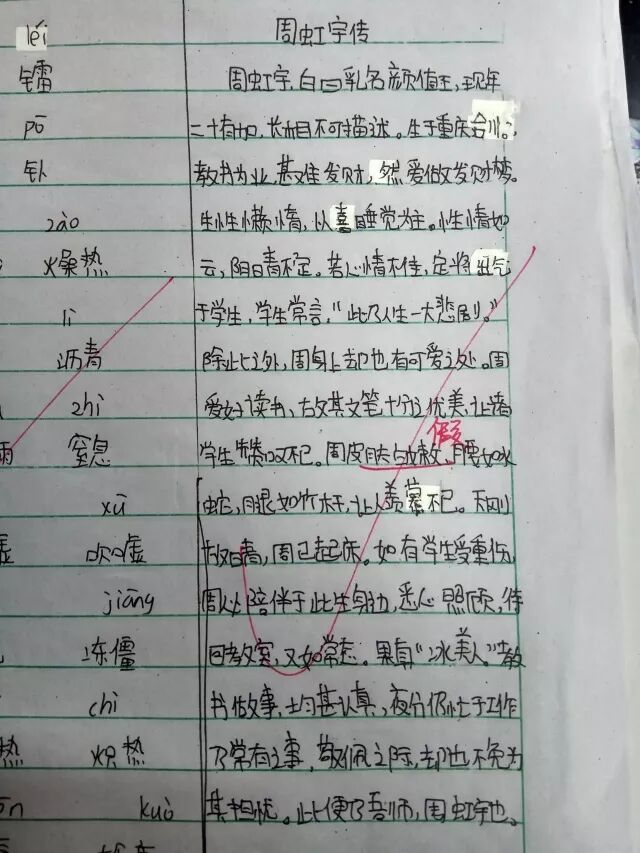 léi
镭
pō
钋
zào
燥热
lì
沥青
zhì
窒息
xū
吹嘘
jiāng
冻僵
chì
炽热
kuò
周虹宇传
周虹宇,自曰乳名颜值王,现年
二十有加,长相不可描述。生于重庆合川。
教书为业,甚难发财,然爱做发财梦。
生性懒惰,以喜睡觉为主。性情如
云,阴晴不定。若心情不佳,定将出气
于学生,学生常言,“此乃人生一大悲剧。”
除此之外,周身上却也有可爱之处。周
爱好读书,故其文笔十分之优美,让诸
学生赞叹不已。周皮肤白嫩,腰如水
假
蛇,腿如竹杆,让人羡慕不已。天刚
放晴,周已起床。如有学生受重伤,
周必陪伴于此生身边,悉心照顾,待
回教室,又如常态。果真“冰美人”教
书做事,均甚认真,夜分仍忙于工作
乃常有之事,敬佩之际,却也不免为
其担忧。此便乃吾师,周虹宇也。